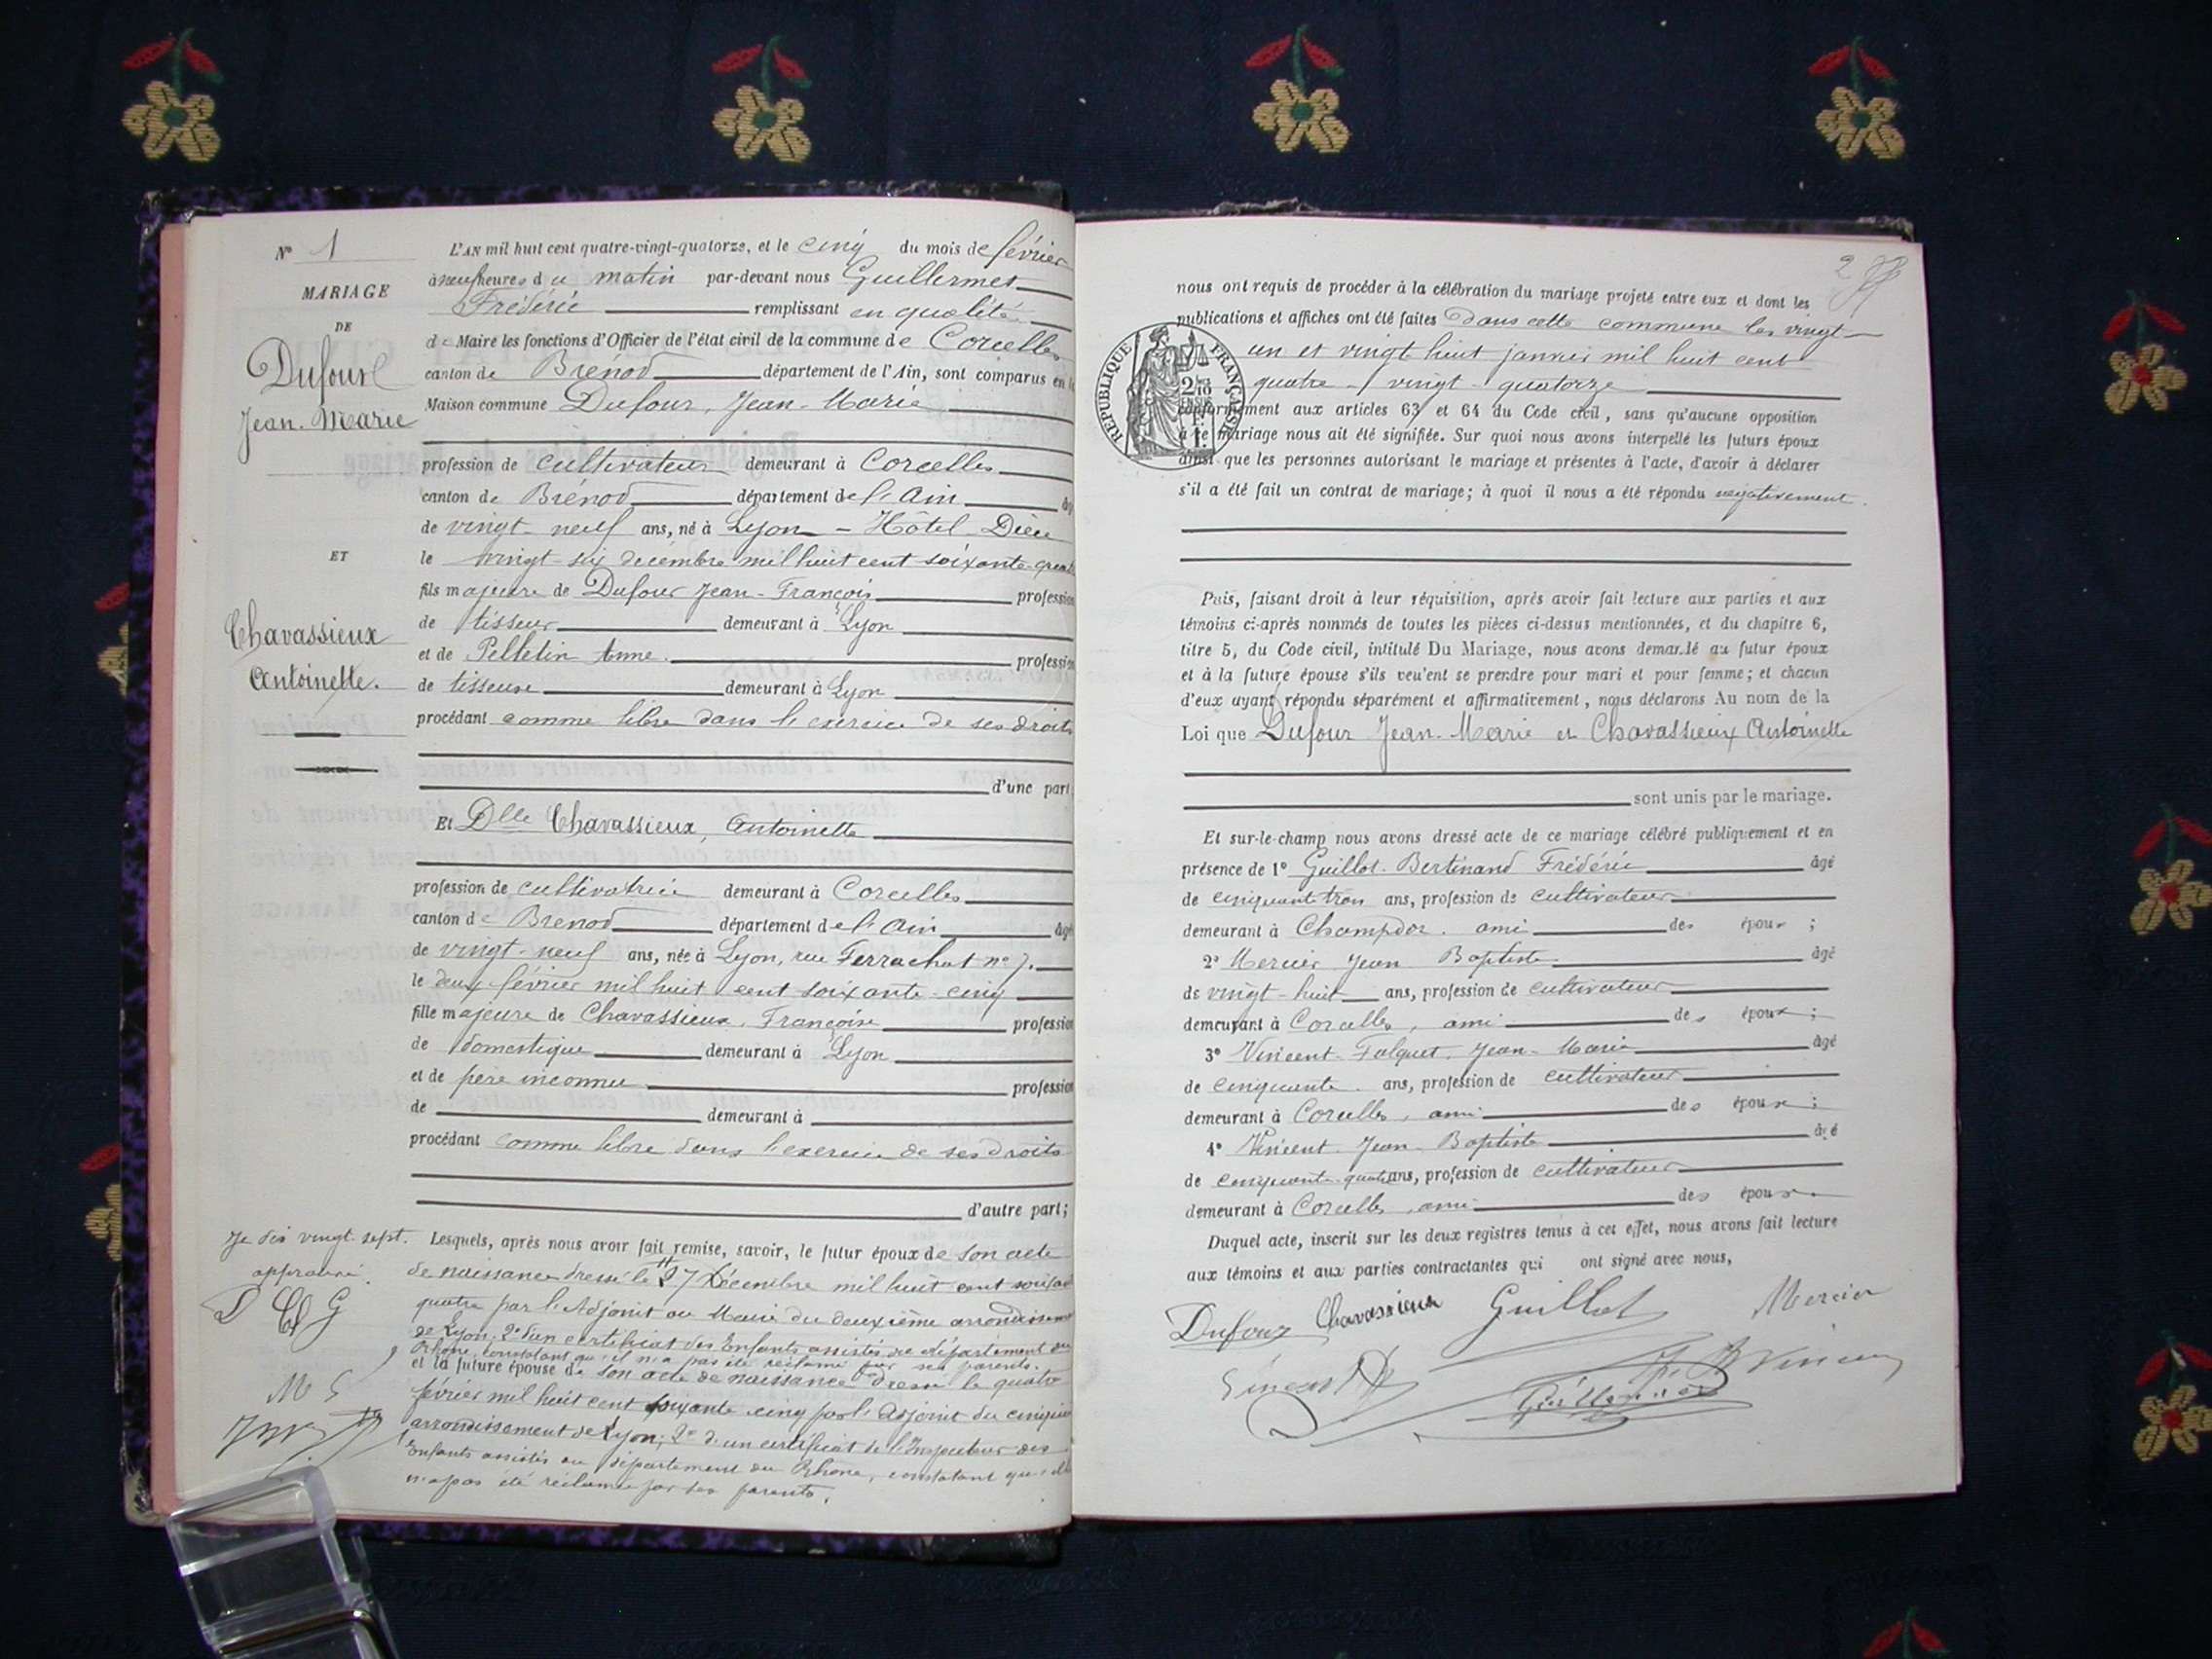 N° 1
MARIAGE
DE
Dufour
Jean-Marie
ET
Chavassieux
Antoinette.
L'AN mil huit cent quatre-vingt-quatorze, et le cinq du mois de février
à neuf heures du matin par-devant nous Guillermet
Frédéric remplissant en qualité
de Maire les fonctions d'Officier de l'état civil de la commune de Corcelles
canton de Brénod département de l'Ain, sont comparus en la
Maison commune Dufour, Jean-Marie
profession de cultivateur demeurant à Corcelles
canton de Brénod département de l'Ain âgé
de vingt-neuf ans, né à Lyon - Hôtel-Dieu
le vingt-six décembre mil huit cent soixante-quatre
fils majeure de Dufour Jean-François profession
de tisseur demeurant à Lyon
et de Pelletin Anne. profession
de tisseuse demeurant à Lyon
procédant comme libre dans l'exercice de ses droits
d'une part
Et Dlle Chavassieux, Antoinette
profession de cultivatrice demeurant à Corcelles
canton de Brenod département de l'Ain âgé
de vingt-neuf ans, née à Lyon, rue Ferrachat n° 7.
le deux février mil huit cent soixante-cinq
fille majeure de Chavassieux, Françoise profession
de domestique demeurant à Lyon
et de père inconnu profession
de demeurant à
procédant comme libre dans l'exercice de ses droits
d'autre part;
Je dis vingt-sept.
approuvé.
D Ch G
M
Lesquels, après nous avoir fait remise, savoir, le futur époux de son acte
de naissance dressé le 27 Décembre mil huit cent soixante
quatre par l'Adjoint au Maire du deuxième arrondissement
de Lyon; 2° d'un certificat des Enfants assistés du département du
Rhône, constatant qu'il n'a pas été réclamé par ses parents.
et la future épouse de son acte de naissance dressé le quatre
février mil huit cent soixante-cinq par l'Adjoint du cinquième
arrondissement de Lyon; 2° d'un certificat de l'Inspecteur des
Enfants assistés au département du Rhône, constatant qu'elle
n'a pas été réclamée par ses parents.
2
nous ont requis de procéder à la célébration du mariage projeté entre eux et dont les
publications et affiches ont été faites dans cette commune les vingt-
un et vingt huit janvier mil huit cent
quatre-vingt-quatorze
RÉPUBLIQUE FRANÇAISE
conformément aux articles 63 et 64 du Code civil, sans qu'aucune opposition
à ce mariage nous ait été signifiée. Sur quoi nous avons interpellé les futurs époux
ainsi que les personnes autorisant le mariage et présentes à l'acte, d'avoir à déclarer
s'il a été fait un contrat de mariage; à quoi il nous a été répondu négativement.
Puis, faisant droit à leur réquisition, après avoir fait lecture aux parties et aux
témoins ci-après nommés de toutes les pièces ci-dessus mentionnées, et du chapitre 6,
titre 5, du Code civil, intitulé Du Mariage, nous avons demandé au futur époux
et à la future épouse s'ils veulent se prendre pour mari et pour femme; et chacun
d'eux ayant répondu séparément et affirmativement, nous déclarons Au nom de la
Loi que Dufour Jean-Marie et Chavassieux Antoinette
sont unis par le mariage.
Et sur-le-champ nous avons dressé acte de ce mariage célébré publiquement et en
présence de 1° Guillot-Bertinand Frédéric âgé
de cinquante trois ans, profession de cultivateur
demeurant à Champdor. ami des époux ;
2° Mercier Jean Baptiste âgé
de vingt-huit ans, profession de cultivateur
demeurant à Corcelles, ami des époux ;
3° Vincent-Falquet, Jean-Marie âgé
de cinquante ans, profession de cultivateur
demeurant à Corcelles, ami des époux ;
4° Vincent Jean-Baptiste âgé
de cinquante-quatre ans, profession de cultivateur
demeurant à Corcelles, ami des époux.
Duquel acte, inscrit sur les deux registres tenus à cet effet, nous avons fait lecture
aux témoins et aux parties contractantes qui ont signé avec nous,
Dufour Chavassieux Guillot Mercier
Vincent Vincent
Guillermet